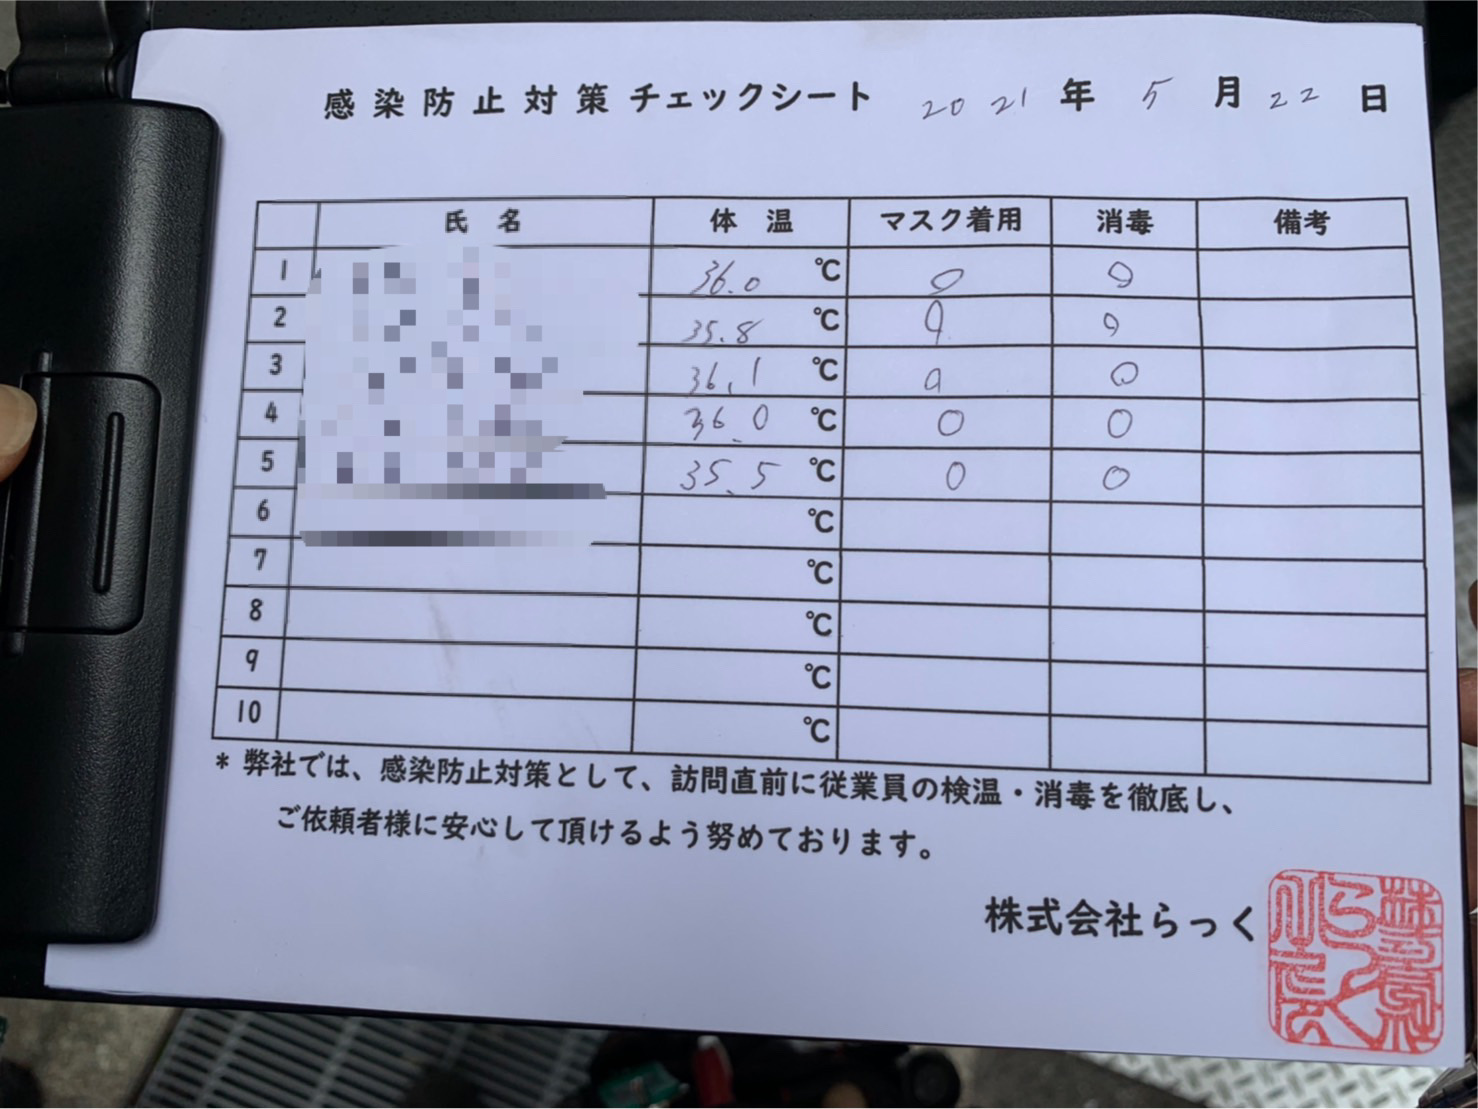 感染防止対策チェックシート 2021年 5月22日
氏名 体温 マスク着用 消毒 備考
1 36.0 ℃ ○ ○
2 35.8 ℃ ○ ○
3 36.1 ℃ ○ ○
4 36.0 ℃ ○ ○
5 35.5 ℃ ○ ○
6 ℃
7 ℃
8 ℃
9 ℃
10 ℃
* 弊社では、感染防止対策として、訪問直前に従業員の検温・消毒を徹底し、
ご依頼者様に安心して頂けるよう努めております。
株式会社らっく